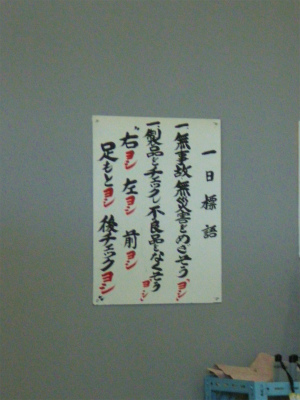 一日標語
一、無事故、無災害をめざそう“ヨシ”
一、製品をチェックし不良品をなくそう“ヨシ”
“右ヨシ 左ヨシ 前ヨシ
足もとヨシ 後チェックヨシ”